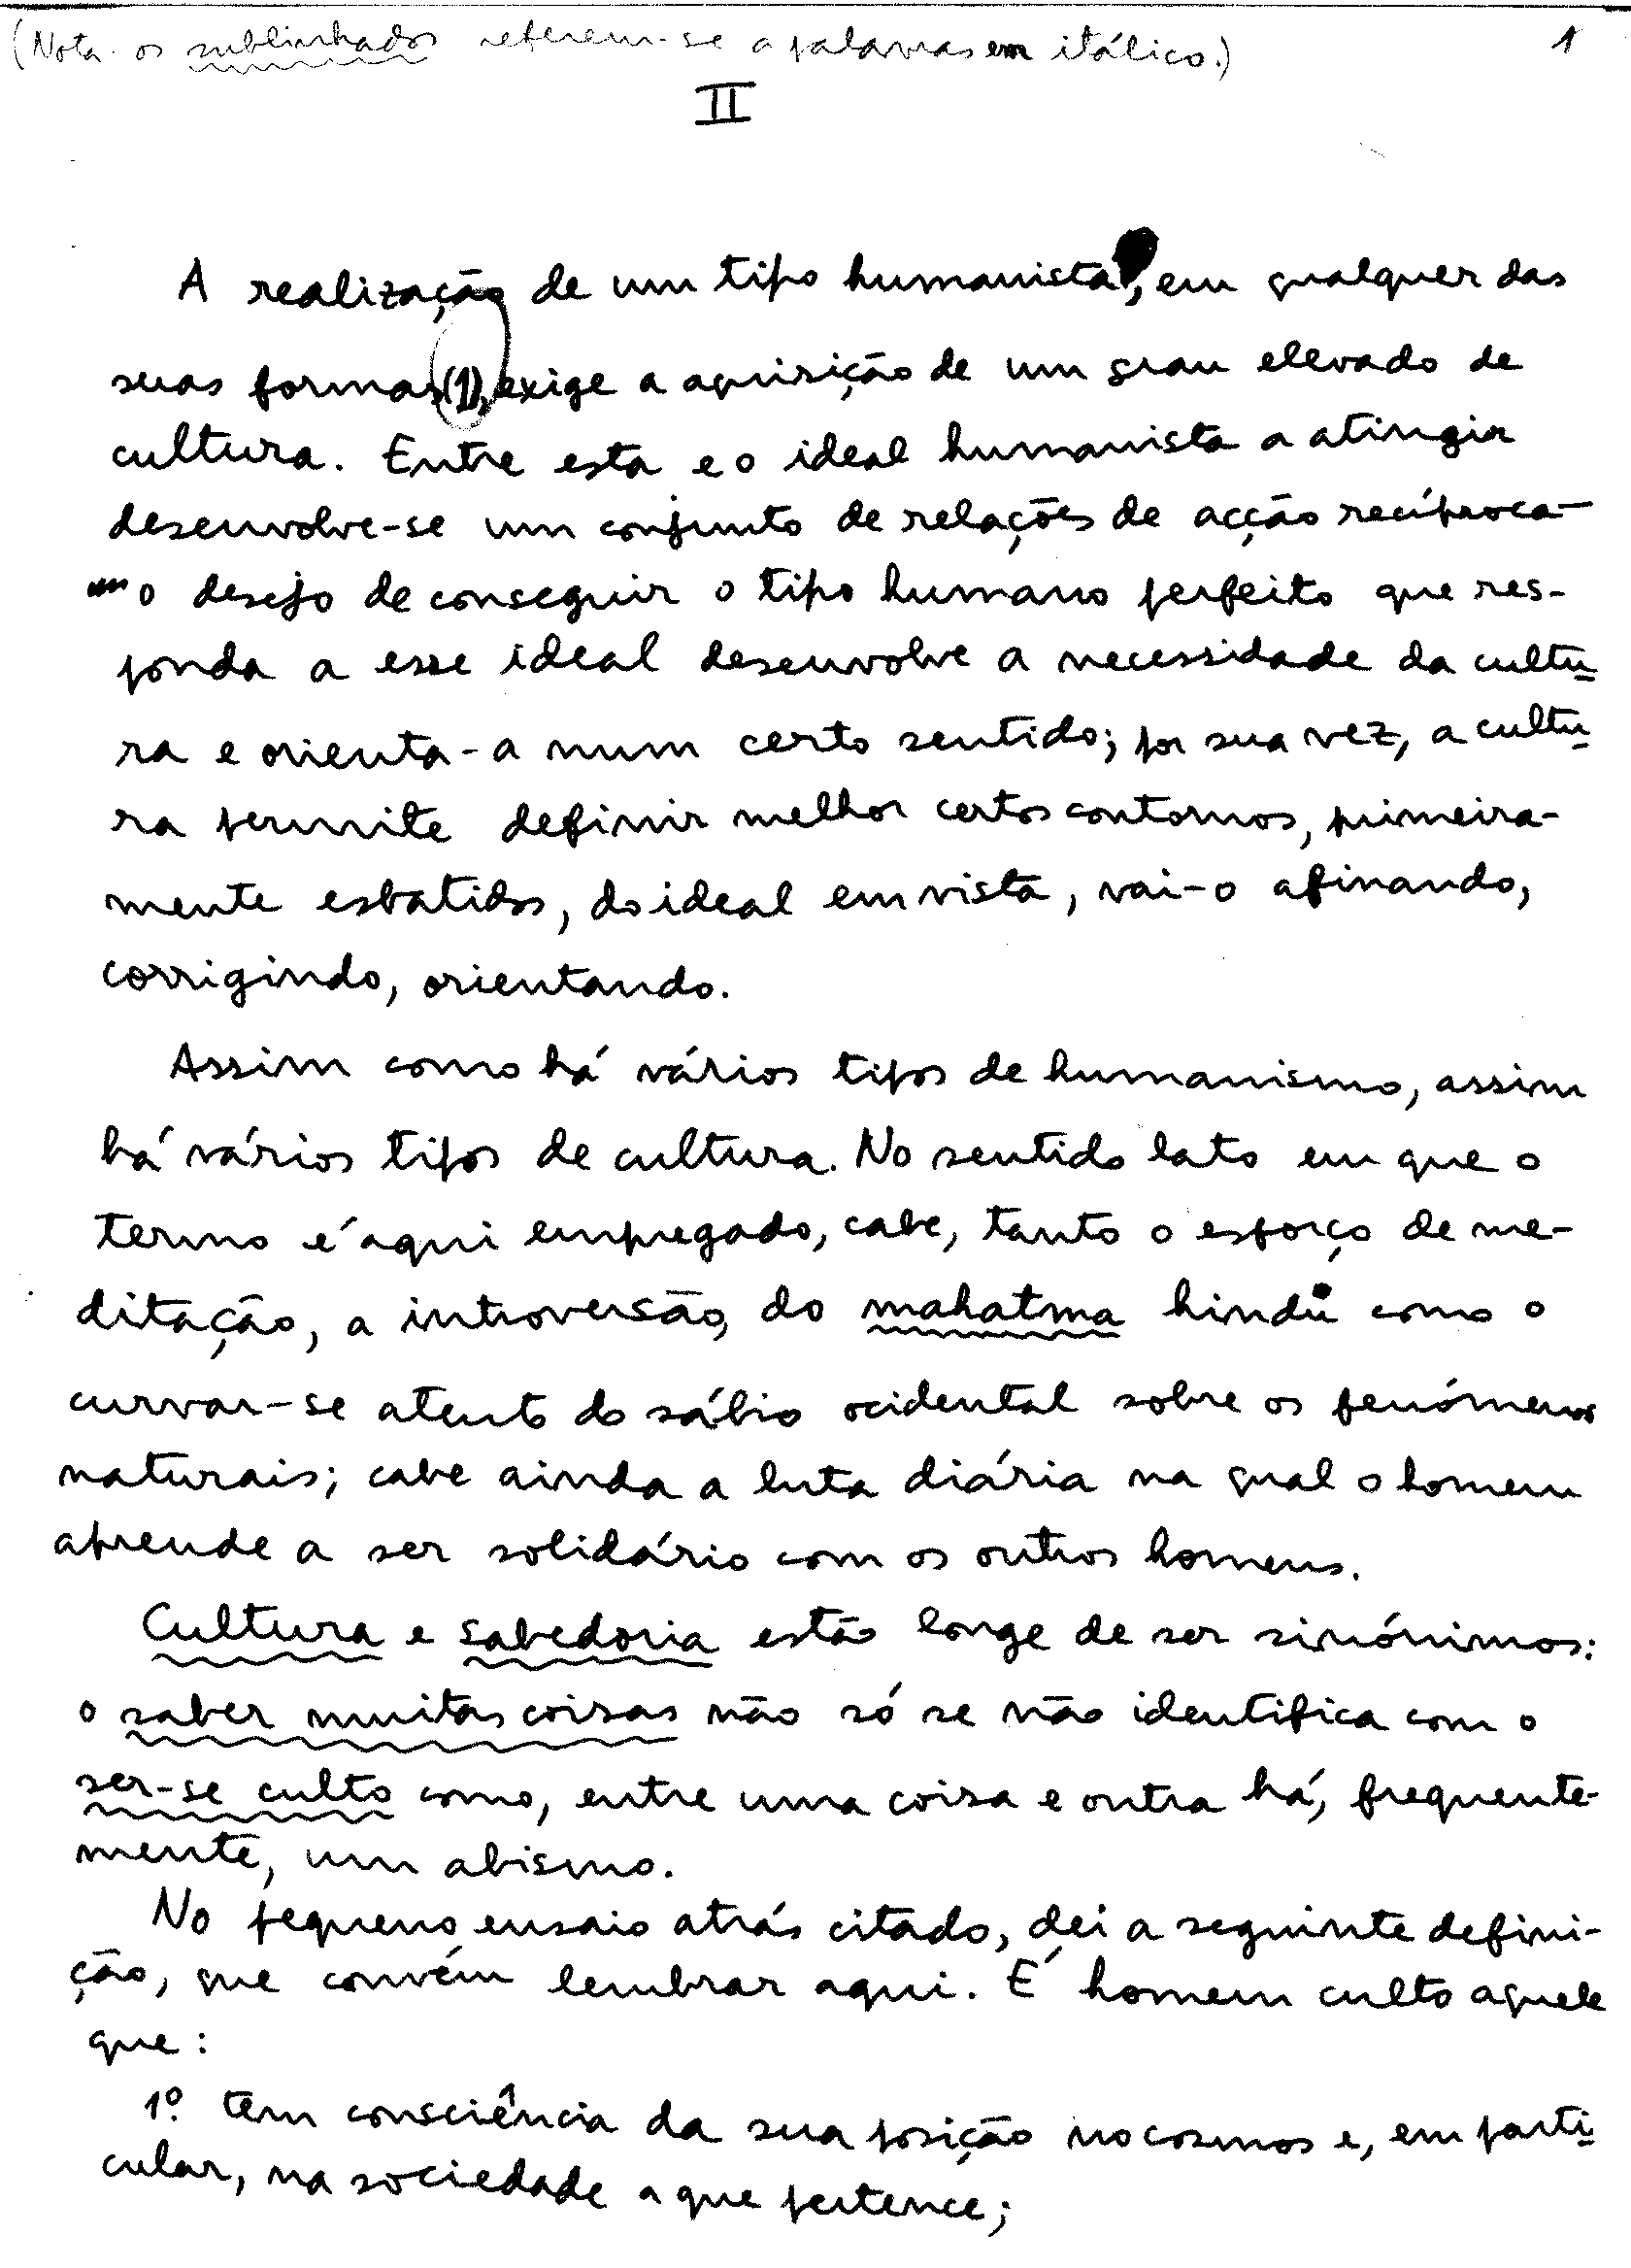 (Nota: os sublinhados referem-se a palavras em itálico.) 1
II
A realização de um tipo humanista, em qualquer das
suas formas (1), exige a aquisição de um grau elevado de
cultura. Entre esta e o ideal humanista a atingir
desenvolve-se um conjunto de relações de acção recíproca—
— o desejo de conseguir o tipo humano perfeito que res-
ponda a esse ideal desenvolve a necessidade da cultu-
ra e orienta-a num certo sentido; por sua vez, a cultu-
ra permite definir melhor certos contornos, primeira-
mente esbatidos, do ideal em vista, vai-o afinando,
corrigindo, orientando.
Assim como há vários tipos de humanismo, assim
há vários tipos de cultura. No sentido lato em que o
termo é aqui empregado, cabe, tanto o esforço de me-
ditação, a introversão, do mahatma hindu como o
curvar-se atento do sábio ocidental sobre os fenómenos
naturais; cabe ainda a luta diária na qual o homem
aprende a ser solidário com os outros homens.
Cultura e sabedoria estão longe de ser sinónimos:
o saber muitas coisas não só se não identifica com o
ser-se culto como, entre uma coisa e outra há, frequente-
mente, um abismo.
No pequeno ensaio atrás citado, dei a seguinte defini-
ção, que convém lembrar aqui. É homem culto aquele
que:
1º. tem consciência da sua posição no cosmos e, em parti-
cular, na sociedade a que pertence;